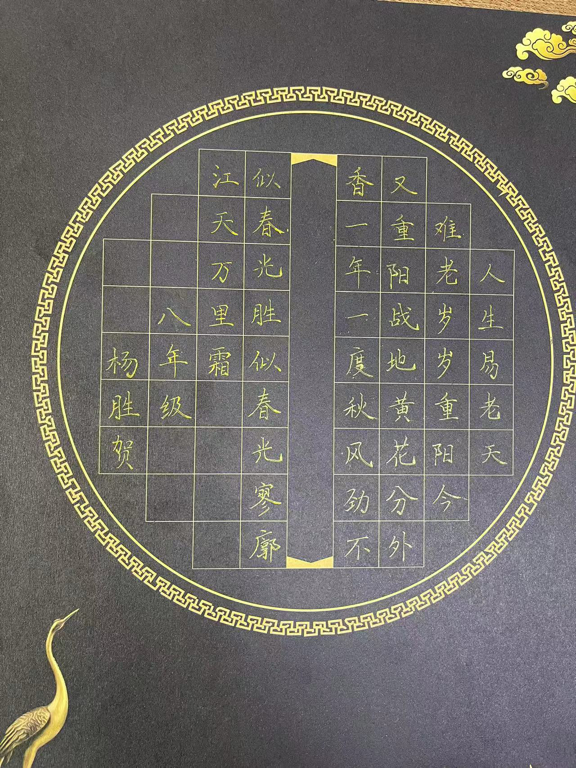 人生易老天
难老岁岁重阳今
又重阳战地黄花分外
香一年一度秋风劲不
似春光胜似春光寥廓
江天万里霜
八年级
杨胜贺